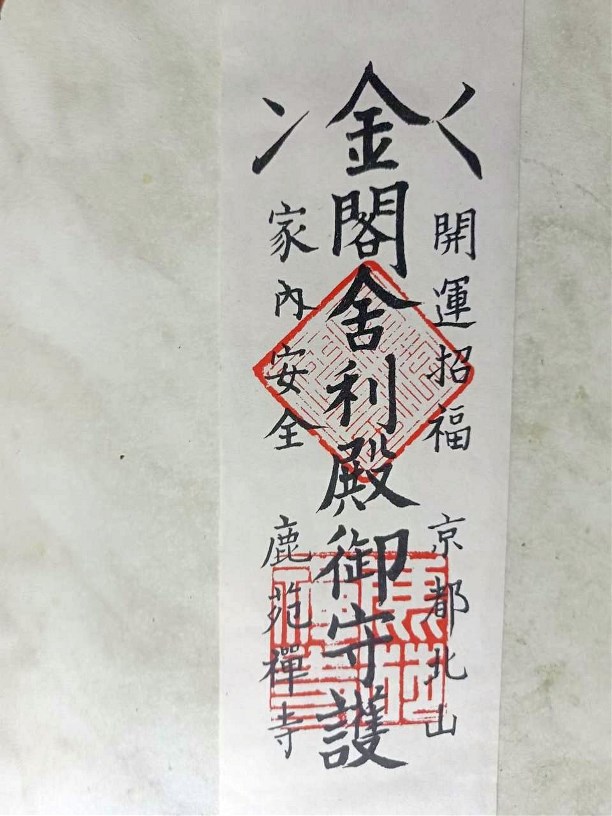 開運招福 京都北山
金閣舎利殿御守護
家内安全 鹿苑禪寺